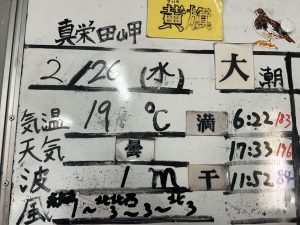 黄旗
真栄田岬
2/26 (水) 大潮
気温 19℃ 満 6:22 183
天気 曇 17:33 176
波 1m 干 11:52 84
風 1~3~3~3